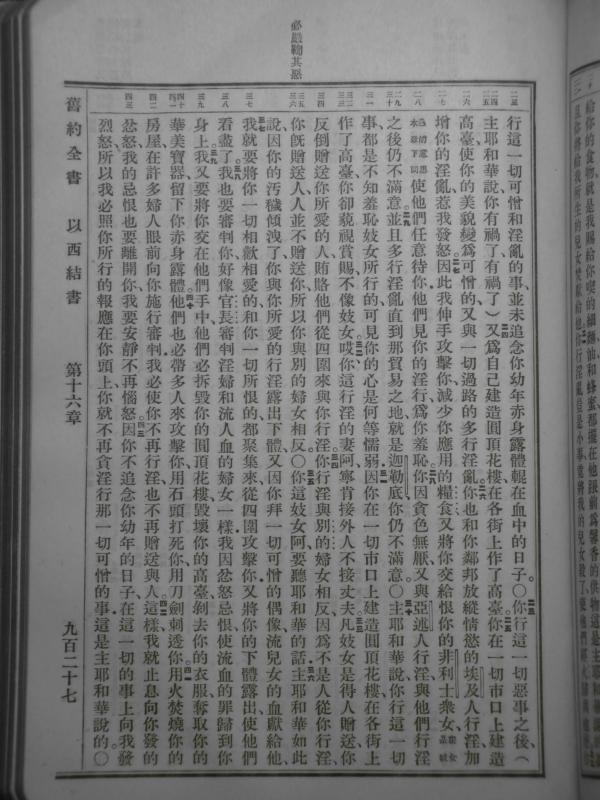 必嚴鞫其惡
行這一切可憎和淫亂的事、並未追念你幼年赤身露體輥在血中的日子。○你行這一切惡事之後、(
主耶和華說你有禍了有禍了)又爲自己建造圓頂花樓、在各街上作了高臺。你在一切市口上建造
高臺、使你的美貌變爲可憎的、又與一過路的多行淫亂。你也和你鄰邦放縱情慾的埃及人行淫、加
增你的淫亂、惹我發怒。因此我伸手攻擊你、減少你應用的糧食、又將你交給恨你的非利士衆女
使他們任意待你。他們見你的淫行、爲你羞恥。你因貪色無厭、又與亞述人行淫、與他們行淫
之後、仍不滿意。並且多行淫亂、直到那貿易之地、就是迦勒底、你仍不滿意。○主耶和華說、你行這一切
事、都是不知羞恥妓女所行的、可見你的心是何等懦弱。因你在一切市口上建造圓頂花樓、在各街上
作了高臺、你卻藐視賞賜、不像妓女。哎、你這行淫的妻阿、寧肯接外人、不接丈夫。凡妓女是得人贈送、你
反倒贈送你所愛的人、賄賂他們從四圍來與你行淫。你行淫與別的婦女相反、因爲不是人從你行淫、
你旣贈送人、人並不贈送你、所以你與別的婦女相反。○你這妓女阿、要聽耶和華的話。主耶和華如此
說、因你的汚穢傾洩了、你與你所愛的行淫露出下體、又因你拜一切可憎的偶像、流兒女的血獻給他、
我就要將你一切相歡相愛的、和你一切所恨的都聚集來、從四圍攻擊你、又將你的下體露出、使他們
看盡了。我也要審判你、好像官長審判淫婦和流人血的婦女一樣、我因忿怒忌恨、使流血的罪歸到你
身上。我又要將你交在他們手中、他們必拆毀你的圓頂花樓、毀壞你的高臺、剝去你的衣服、奪取你的
華美寶器、留下你赤身露體。他們也必帶多人來攻擊你、用石頭打死你、用刀劍刺透你、用火焚燒你的
房屋、在許多婦人眼前向你施行審判、我必使你不再行淫、也不再贈送與人。這樣、我就止息向你發的
忿怒、我的忌恨也要離開你、我要安靜不再惱怒。因你不追念你幼年的日子、在這一切的事上向我發
烈怒、所以我必照你所行的報應在你頭上、你就不再貪淫、行那一切可憎的事、這是主耶和華說的。○
舊約全書 以西結書 第十六章 九百二十七